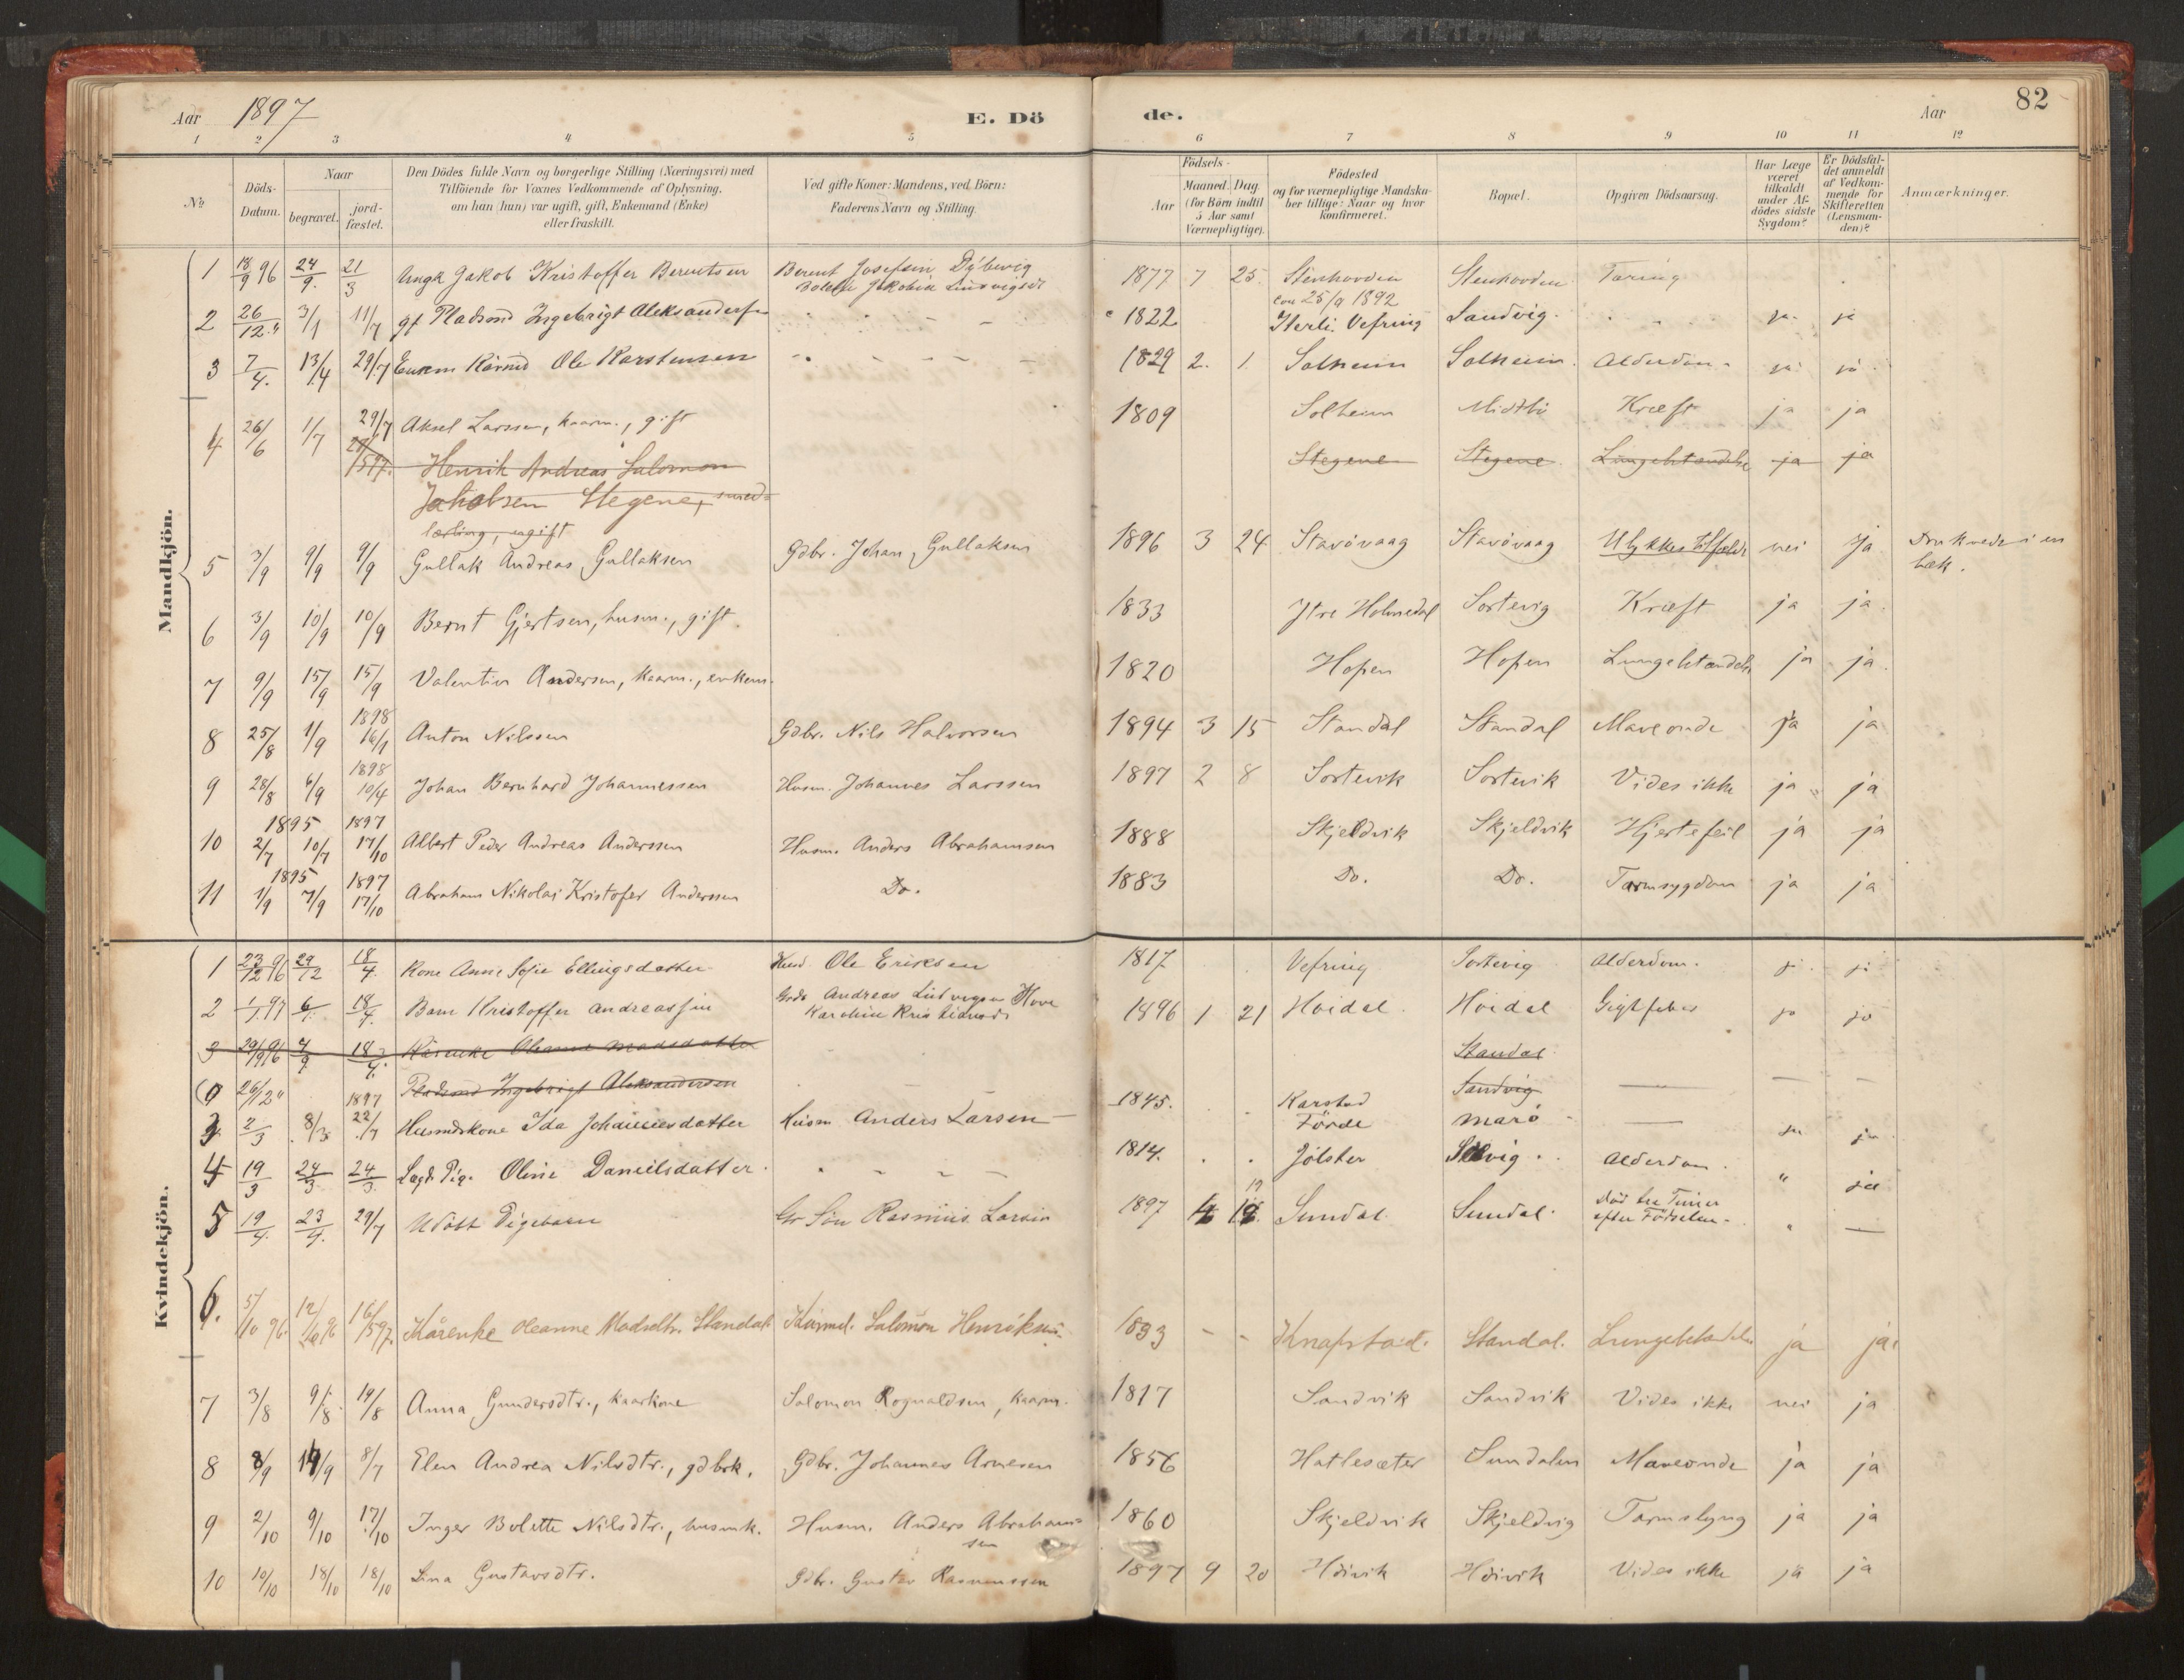 Aar 1897 E. Dö de. Aar 82
1 2 3 4 5 6 7 8 9 10 11 12
No
Döds-Datum.
Naar
begravet.
jord-fæstet.
Den Dödes fulde Navn og borgerlige Stilling (Næringsvei) med
Tilföiende for Voxnes Vedkommende af Oplysning,
om han (hun) var ugift, gift, Enkemand (Enke)
eller fraskilt.
Ved gifte Koner: Mandens, ved Börn:
Faderens Navn og Stilling.
Födsels-
Aar
Maaned. Dag
(for Börn indtil
5 Aar samt
Værnepligtige).
Födested
og for værnepligtige Mandska-
ber tillige: Naar og hvor
konfirmeret.
Bopæl.
Opgiven Dödsaarsag.
Har Læge
været
tilkaldt
under Af-
dödes sidste
Sygdom?
Er Dödsfal-
det anmeldt
af Vedkom-
mende for
Skifteretten
(Lensman-
den)?
Anmærkninger.
Mandkjön.
1 18/9 96 24/9. 21/3 Ungk Jakob Kristoffer Berentsen Berent Josefsin Dybevig 1877 7 25 Stenhovden Stenhovden Taring
Jakobia Ludvigsdt con 25/9 1892
2 26/12 " 3/1 11/7 gf Pladsmd Ingebrigt Aleksandersen 1822 Iterli Vefring Sandvig. ja. ja
3 7/4. 13/4 29/7 Enkem Ole Karstensen 1829 2. 1. Solheim Solheim. Alderdom ja ja
4 26/6 1/7 29/7 Aksel Larssen, kaarm., gift 1809 Solheim Midtbö Kræft ja ja
Henrik Andreas Salomon Stegene Stegene. Lungebetændelse ja ja
Jakobsen Stegene, smed-
lærling, ugift
5 3/9 9/9 9/9 Gullak Andreas Gullaksen Gdbr. Johan Gullaksen 1896 3 24 Stavövaag Stavövaag Ulykkestilfælde nei ja Druknede i en
bæk.
6 3/9 10/9 10/9 Bernt Gjertsen, husm., gift. 1833 Ytre Holmedal Sortevig Kræft ja ja.
7 9/9 15/9 15/9 Valentin Andersen, kaarm., enkem. 1820 Hopen Hopen Lungebetændelse ja ja.
1898
8 25/8 1/9 16/1 Anton Nilssen Gdbr. Nils Halvorsen 1894 3 15 Standal Standal Maveonde ja ja
1898
9 28/8 6/9 10/4 Johan Bernhard Johannessen Husm. Johannes Larssen 1897 2 8 Sortevik Sortevik Vides ikke ja ja
1895 1897
10 2/7 10/7 17/10 Albert Peder Andreas Anderssen Husm. Anders Abrahamsen 1888 Skjeldvik Skjeldvik Hjertefeil ja ja
1895 1897
11 1/9 7/9 17/10 Abraham Nikolai Kristofer Anderssen Do. 1883 Do. Do. Tarmsygdom ja ja
Kvindekjön.
1 23/12 96 29/12 18/4. Kone Anne Sofie Ellingsdatter Husm. Ole Eriksen 1817 Vefring Sortevig Alderdom. ja. ja
2 1/1. 97 6/1. 18/4. Barn Kristoffer Andreassen Andreas Ludvigsen Hove 1896 1 21 Höidal Höidal Gigtfeber ja ja
3 29/9 96 18/4. Kårenke Oleanne Madsdatter Standal
26/12 " Pladsmd Ingebrigt Aleksandersen Sandvig
1897
3 2/3 8/3. 22/7 Husmdskone Ida Johannesdatter Husm Anders Larsen 1845. Karstad
Förde Marö ja ja
4 19/3 24/3 24/3. Lægd. Pige. Oline Danielsdatter. 1814. Jölster Solvig. Alderdom. " ja
5 19/4. 23/4. 29/7 Udöbt Pigebarn Rasmus Larsen 1897 4 19 Sundal. Sundal. död tre Timer
efter Födselen. " —
6. 5/10 96. 12/10 96 16/5 97. Kårenke Oleanne Madsdtr. Standal Salomon Henriksen 1833 - - Knapstad. Standal. Lungebetændelse ja ja.
7 3/8 9/8. 19/8 Anna Gundersdtr., kaarkone Salomon Rognaldsen, kaarm. 1817 Sandvik Sandvik Vides ikke nei ja
8 8/9 14/9 8/7 Elen Andrea Nilsdtr., gdbrk. Gdbr. Johannes Arnesen 1856 Hatlesæter Sundalen Maveonde ja ja
9 2/10 9/10 17/10 Inger Bolette Nilsdtr., husmk. Husm. Anders Abraham-
sen 1860 Skjeldvik Skjeldvig Tarmslyng ja ja
10 10/10 18/10 18/10 Lina Gustavsdtr. Gdbr. Gustav Rasmussen 1897 9 20 Höivik Höivik Vides ikke ja ja